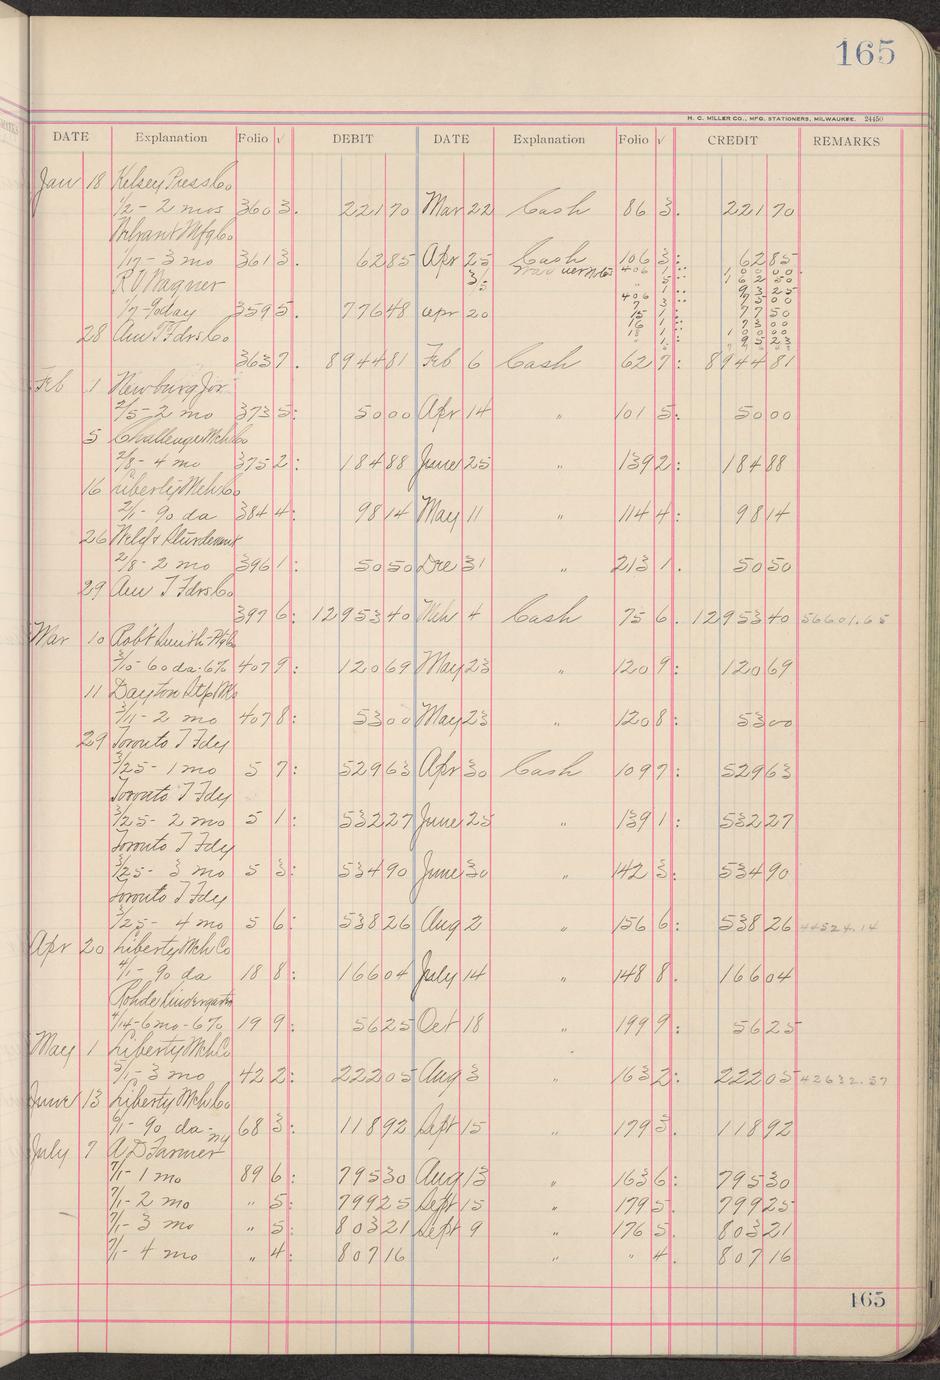 165
H. C. MILLER CO., MFG. STATIONERS, MILWAUKEE. 24450
DATE Explanation Folio √ DEBIT DATE Explanation Folio √ CREDIT REMARKS
Jan 18 Kelsey Press Co
1/2 - 2 mos 360 3. 221 70 Mar 22 Cash 86 3. 221 70
Mfg Co
1/17 - 3 mo 361 3. 62 85 Apr 25 Cash 106 3: 62 85
R V Wagner
1/7 - 90 day 359 5. 776 48 Apr 20
28 Am T Fdrs Co
363 7. 8944 81 Feb 6 Cash 62 7: 8944 81
Feb 1 Newburg Jor
2/5 - 2 mo 373 5: 50 00 Apr 14 " 101 5: 50 00
5 Challenge Mch Co
2/8 - 4 mo 375 2: 184 88 June 25 " 139 2: 184 88
16 Liberty Mch Co
2/1 - 90 da 384 4: 98 14 May 11 " 114 4: 98 14
26 Weld & Sturdevant
2/8 - 2 mo 396 1: 50 50 Dec 31 " 213 1. 50 50
29 Am T Fdrs Co
397 6: 12953 40 Mch 4 Cash 75 6. 12953 40 56601.65
Mar 10 Robt Smith Ptg Co
3/10 - 60 da - 6% 407 9: 120 69 May 23 " 120 9: 120 69
11 Dayton
3/11 - 2 mo 407 8: 53 00 May 23 " 120 8: 53 00
29 Toronto T Fdy
3/25 - 1 mo 5 7: 529 63 Apr 30 Cash 109 7: 529 63
Toronto T Fdy
3/25 - 2 mo 5 1: 532 27 June 25 " 139 1: 532 27
Toronto T Fdy
3/25 - 3 mo 5 3: 534 90 June 30 " 142 3: 534 90
Toronto T Fdy
3/25 - 4 mo 5 6: 538 26 Aug 2 " 156 6: 538 26 44524.14
Apr 20 Liberty Mch Co
4/1 - 90 da 18 8: 166 04 July 14 " 148 8. 166 04
Rohde Kindergarten
4/14 - 6 mo - 6% 19 9: 56 25 Oct 18 " 199 9: 56 25
May 1 Liberty Mch Co
5/1 - 3 mo 42 2: 222 05 Aug 3 " 163 2: 222 05 42632.57
June 13 Liberty Mch Co
6/1 - 90 da 68 3: 118 92 Sept 15 " 179 3. 118 92
July 7 A D Farmer
7/1 - 1 mo 89 6: 795 30 Aug 13 " 163 6: 795 30
7/1 - 2 mo " 5: 799 25 Sept 15 " 179 5. 799 25
7/1 - 3 mo " 5: 803 21 Sept 9 " 176 5. 803 21
7/1 - 4 mo " 4: 807 16 " " 4. 807 16
165